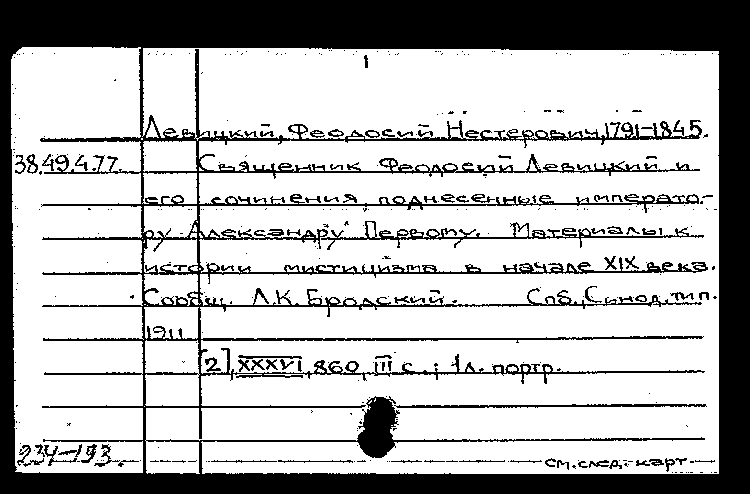 1
Левицкий, Феодосий Нестерович, 1791-1845.
38.49.4.77. Священник Феодосий Левицкий и
его сочинения, поднесенные императо-
ру Александру Первому. Материалы к
истории мистицизма в начале XIX века.
Сообщ. Л.К. Бродский. Спб., Синод. тип.
1911
[2], XXXVI, 860, III с.; 1 л. портр.
234-193.
см. след. карт